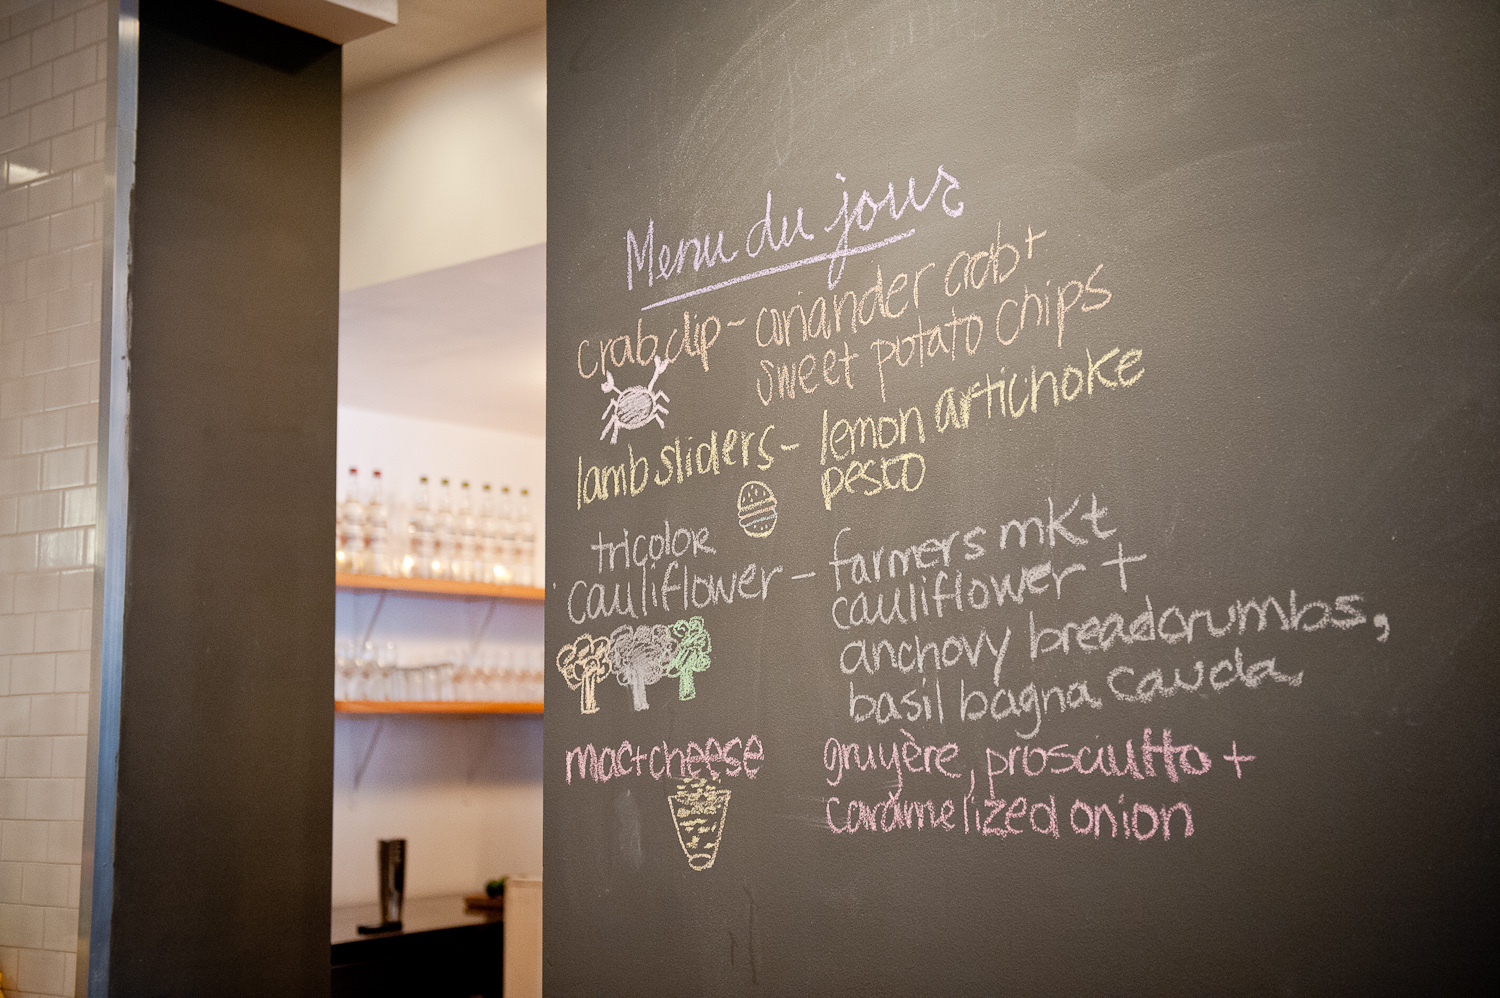 Menu du jour
crab dip - coriander crab +
sweet potato chips
lamb sliders - lemon artichoke
pesto
tricolor
cauliflower - farmers mkt
cauliflower +
anchovy breadcrumbs,
basil bagna cauda
mac + cheese gruyère, prosciutto +
caramelized onion